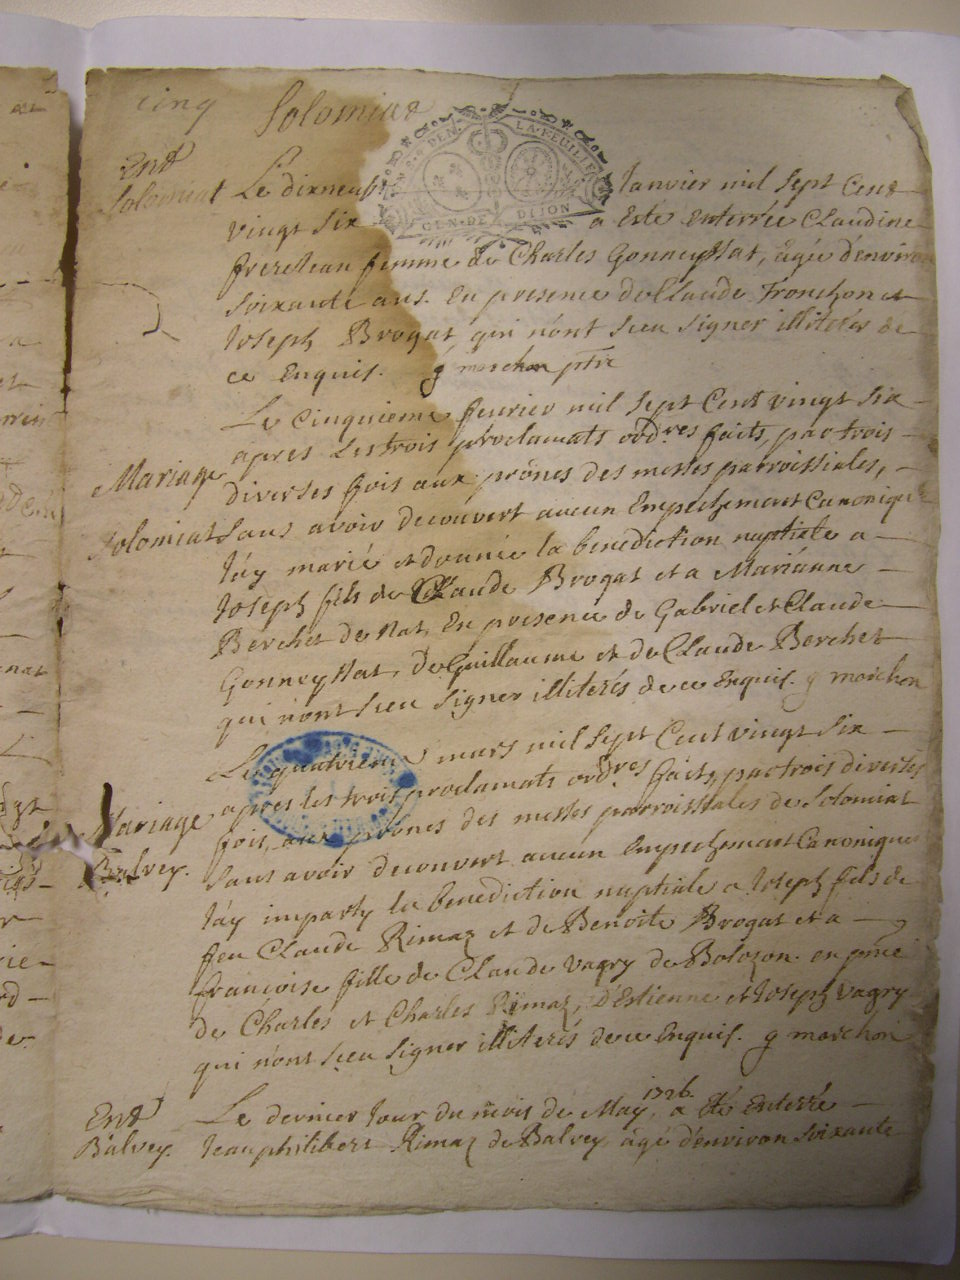 cinq Solomiat
DEN. LA FEUILLE
GEN. DE DIJON
Ent
Solomiat
Le dixneuf Ianvier mil sept Cent
vingt six a Esté Enterrée Claudine
frerejean femme de Charles Gonneyllat, agée d'environ
soixante ans. En presence de Claude Tronchon et
Ioseph Brogat, qui n'ont sceu signer illiterés de
ce Enquis. g marchon ptre
Le Cinquieme feurier mil sept Cent vingt six
apres les trois proclamats ordres faits, par trois
Mariage
diverses fois aux prônes des messes parroissiales,
Solomiat
sans avoir decouvert aucun Empechement Canonique
I'ay marié et donnée la benediction nuptiale a
Ioseph fils de Claude Brogat et a Mariánne
Berchet de Nat, En presence de Gabriel et Claude
Gonneyllat, de Guillaume et de Claude Berchet
qui n'ont sceu signer illiterés de ce Enquis. g marchon
Le quatrieme mars mil sept Cent vingt six
apres les trois proclamats ordres faits, par trois diverses
Mariage
fois, aux prônes des messes parroissiales de Solomiat
Balvey.
sans avoir decouvert aucun Empechement Canonique
I'ay imparty la benediction nuptiale a Ioseph fils de
feu Claude Rimaz et de Benoite Brogat et a
françoise fille de Claude vagry de Bolozon. en pnce
de Charles et Charles Rimaz, D'Estienne et Ioseph vagry
qui n'ont sceu signer illiterés de ce Enquis. g marchon
Ent
Balvey.
Le dernier Iour du mois de May 1726. a été Enterré
Iean philibert Rimaz de Balvey agé d'environ soixante